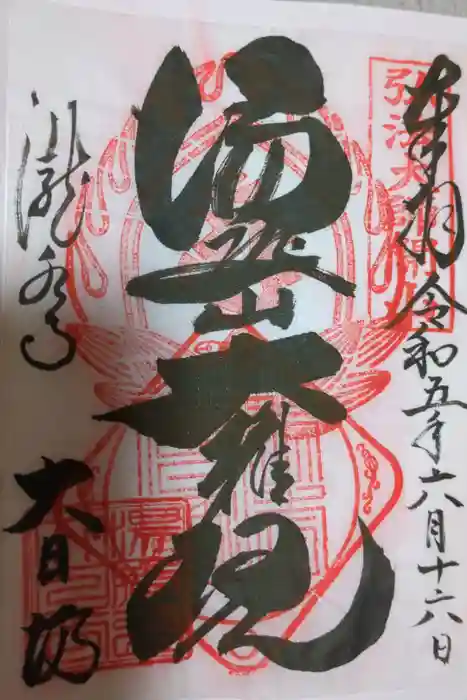 奉拝 令和五年六月十六日
弘法大師開基
湯殿山大権現
瀧水寺 大日坊